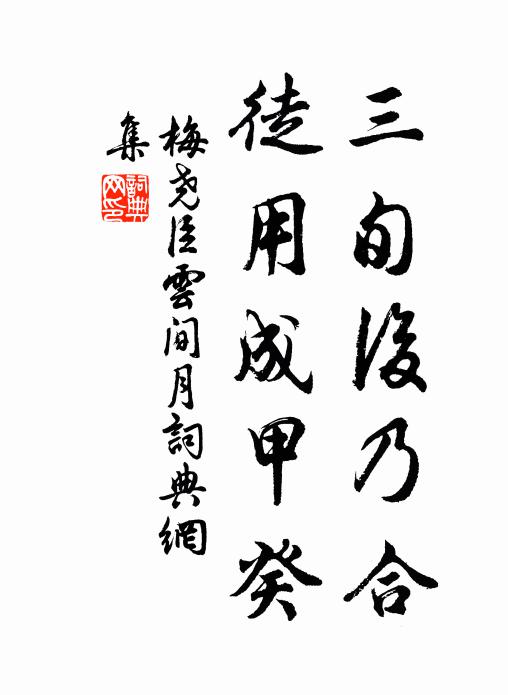 三旬後乃合
徒用成甲癸
梅尧臣雲间月詞典網
集
詞典
网印